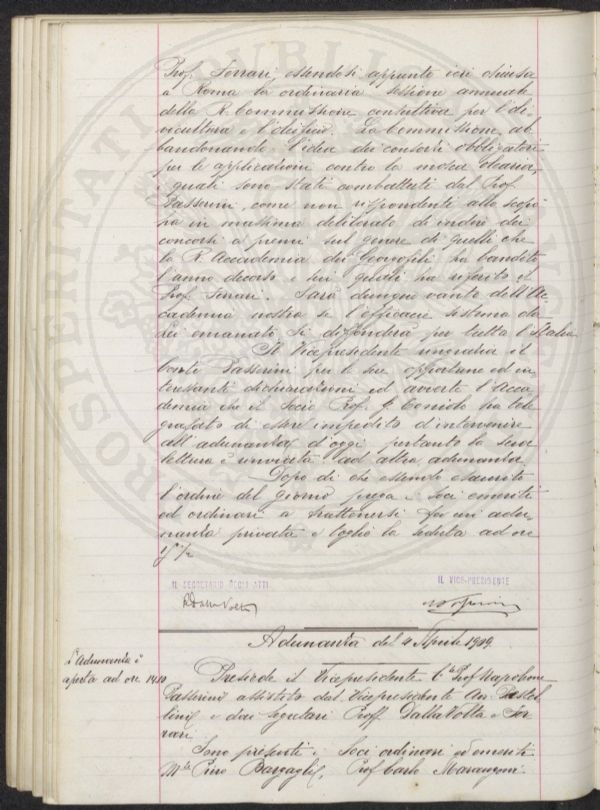 Prof. Ferrari, essendosi appunto ieri chiusa
a Roma la ordinaria sessione annuale
della R. Commissione consultiva per l'oli-
vicultura e l'oleificio. La Commissione, ab-
bandonando l'idea dei consorzi obbligatori
per le applicazioni contro la mosca olearia,
i quali sono stati combattuti dal Prof.
Passerini, come non rispondenti allo scopo
ha in massima deliberato di indire dei
concorsi a premi sul genere di quelli che
la R. Accademia dei Georgofili ha bandito
l'anno decorso e sui quali ha riferito il
Prof. Ferrari. Sarà dunque vanto dell'Ac-
cademia nostra se l'efficace sistema da
Lei emanato, si diffonderà per tutta l'Italia
Il Vicepresidente ringrazia il
Conte Passerini per le sue opportune ed in-
teressanti dichiarazioni ed avverte l'Acca-
demia che il Socio Prof. G. Toniolo ha tele
grafato di essere impedito d'intervenire
all'adunanza d'oggi pertanto la sua
lettura è rinviata ad altra adunanza
Dopo di che essendo esaurito
l'ordine del giorno prega i soci emeriti
ed ordinari a trattenersi per una adu-
nanza privata e toglie la seduta ad ore
IL SEGRETARIO DEGLI ATTI
IL VICE-PRESIDENTE
R Dalla Volta
Adunanza del 4 Aprile 1909.
L'Adunanza è
aperta ad ore 14,10
Presiede il Vicepresidente C.te Prof Napoleone
Passerini assistito dal Vicepresidente Av. Pestel-
lini e dai Segretari Proff. Dalla Volta e Fer
rari.
Sono presenti i Soci ordinari ed emeriti
M.se Piero Bargagli, Prof Carlo Marangoni